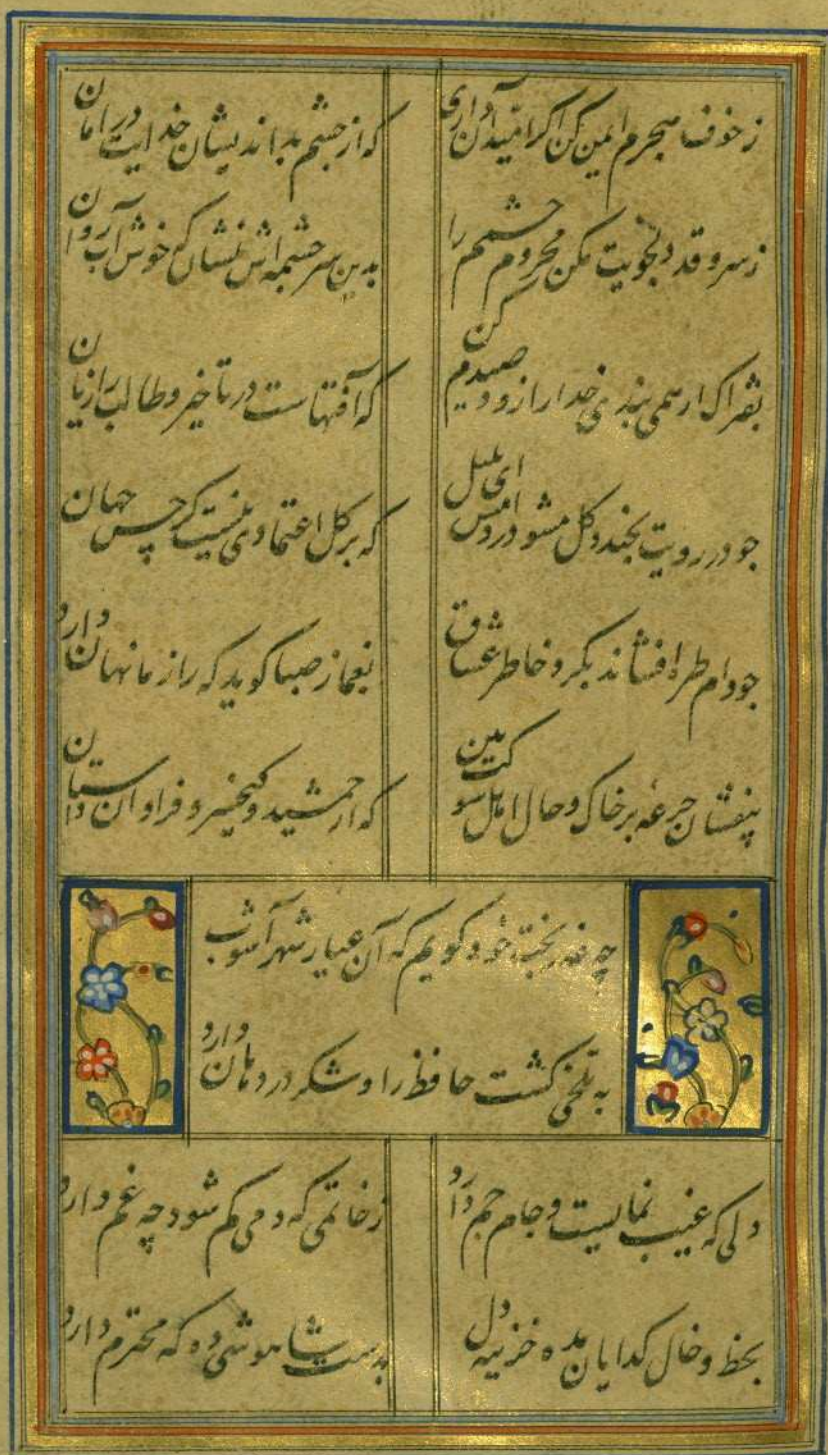 ز خوف هجرم ایمن کن اگر امید آن داری
که از چشم بد اندیشان خدایت در امان
ز سرو قد دلجویت مکن محروم چشمم را
بدین سرچشمه اش نشان که خوش آب روان
بفتراک ار همی بندی خدا را زود صیدم کن
که آفتهاست در تأخیر و طالب را زیان
جو در رویت بخندد کل مشو در دامش ای بلبل
که بر کل اعتمادی نیست کر حسن جهان
جو دام طره افشاند ز کرد خاطر عشاق
بغماز صبا کوید که راز ما نهان دارد
بیفشان جرعه بر خاک و حال اهل شوکت بین
که از جمشید و کیخسرو فراوان داستان
چه عذر بخت خود کویم که آن عیار شهرآشوب
به تلخی کشت حافظ را و شکر در دهان دارد
دلی که غیب نمایست و جام جم دارد
ز خاتمی که دمی کم شود چه غم دارد
بخط و خال کدایان مده خزینه دل
بدست شاهوشی ده که محترم دارد